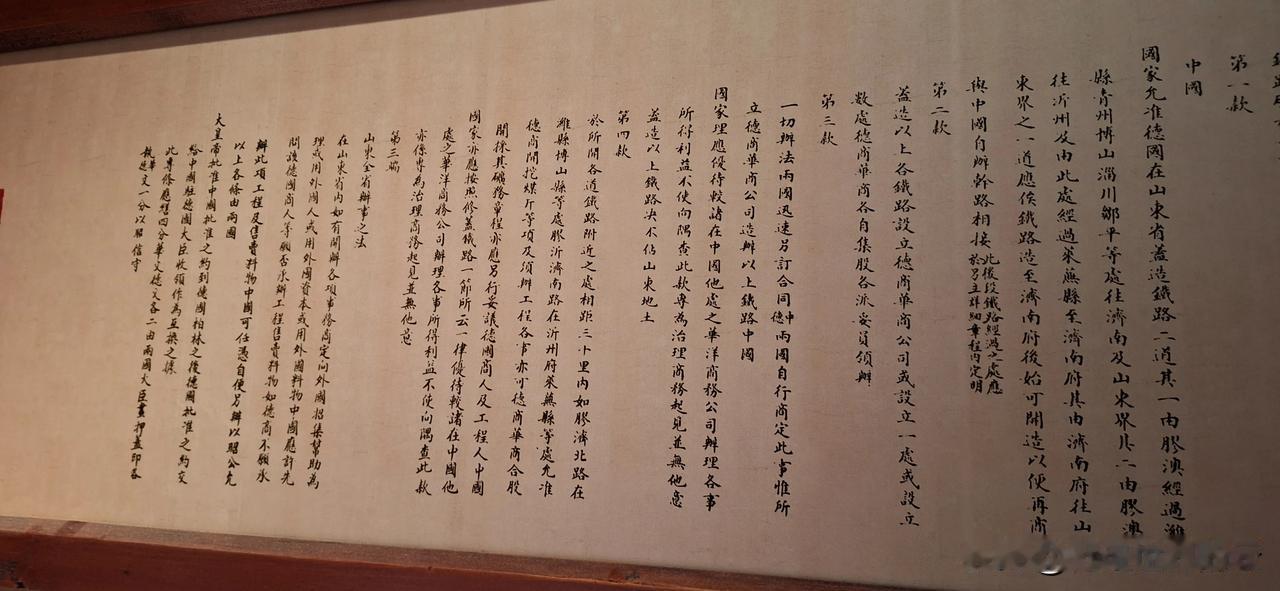 第一款
中國
國家允准德國在山東省蓋造鐵路二道其一由膠澳經過濰
縣青州博山淄川鄒平等處往濟南及山東界其二由膠澳
往沂州及由此處經過萊蕪縣至濟南府其由濟南府往山
東界之一道應俟鐵路造至濟南府後始可開造以便再商
與中國自辦幹路相接此後段鐵路經過之處應
於另立詳細章程內定明
第二款
蓋造以上各鐵路設立德商華商公司或設立一處或設立
数處德商華商各自集股各派妥員領辦
第三款
一切辦法兩國迅速另訂合同中德兩國自行商定此事惟所
立德商華商公司造辦以上鐵路中國
國家理應優待較諸在中國他處之華洋商務公司辦理各事
所得利益不使向隅查此款專為治理商務起見並無他意
蓋造以上鐵路決不佔山東地土
第四款
於所開各道鐵路附近之處相距三十里內如膠濟北路在
濰縣博山縣等處膠沂濟南路在沂州府萊蕪縣等處允准
德商開挖煤斤等項及須辦工程各事亦可德商華商合股
開採其礦務章程亦應另行妥議德國商人及工程人中國
國家亦應按照修蓋鐵路一節所云一律優待較諸在中國他
處之華洋商務公司辦理各事所得利益不使向隅查此款
亦係專為治理商務起見並無他意
第三端
山東全省辦事之法
在山東省內如有開辦各項事務商定向外國招集幫助為
理或用外國人或用外國資本或用外國料物中國應許先
問該德國商人等願否承辦工程售賣料物如德商不願承
辦此項工程及售賣料物中國可任憑自便另辦以昭公允
以上各條由兩國
大皇帝批准中國批准之約到德國柏林之後德國批准之約交
給中國駐德國大臣收領作為互換之據
此專條應繕四分華文德文各二由兩國大臣畫押蓋印各
執華德文一分以昭信守